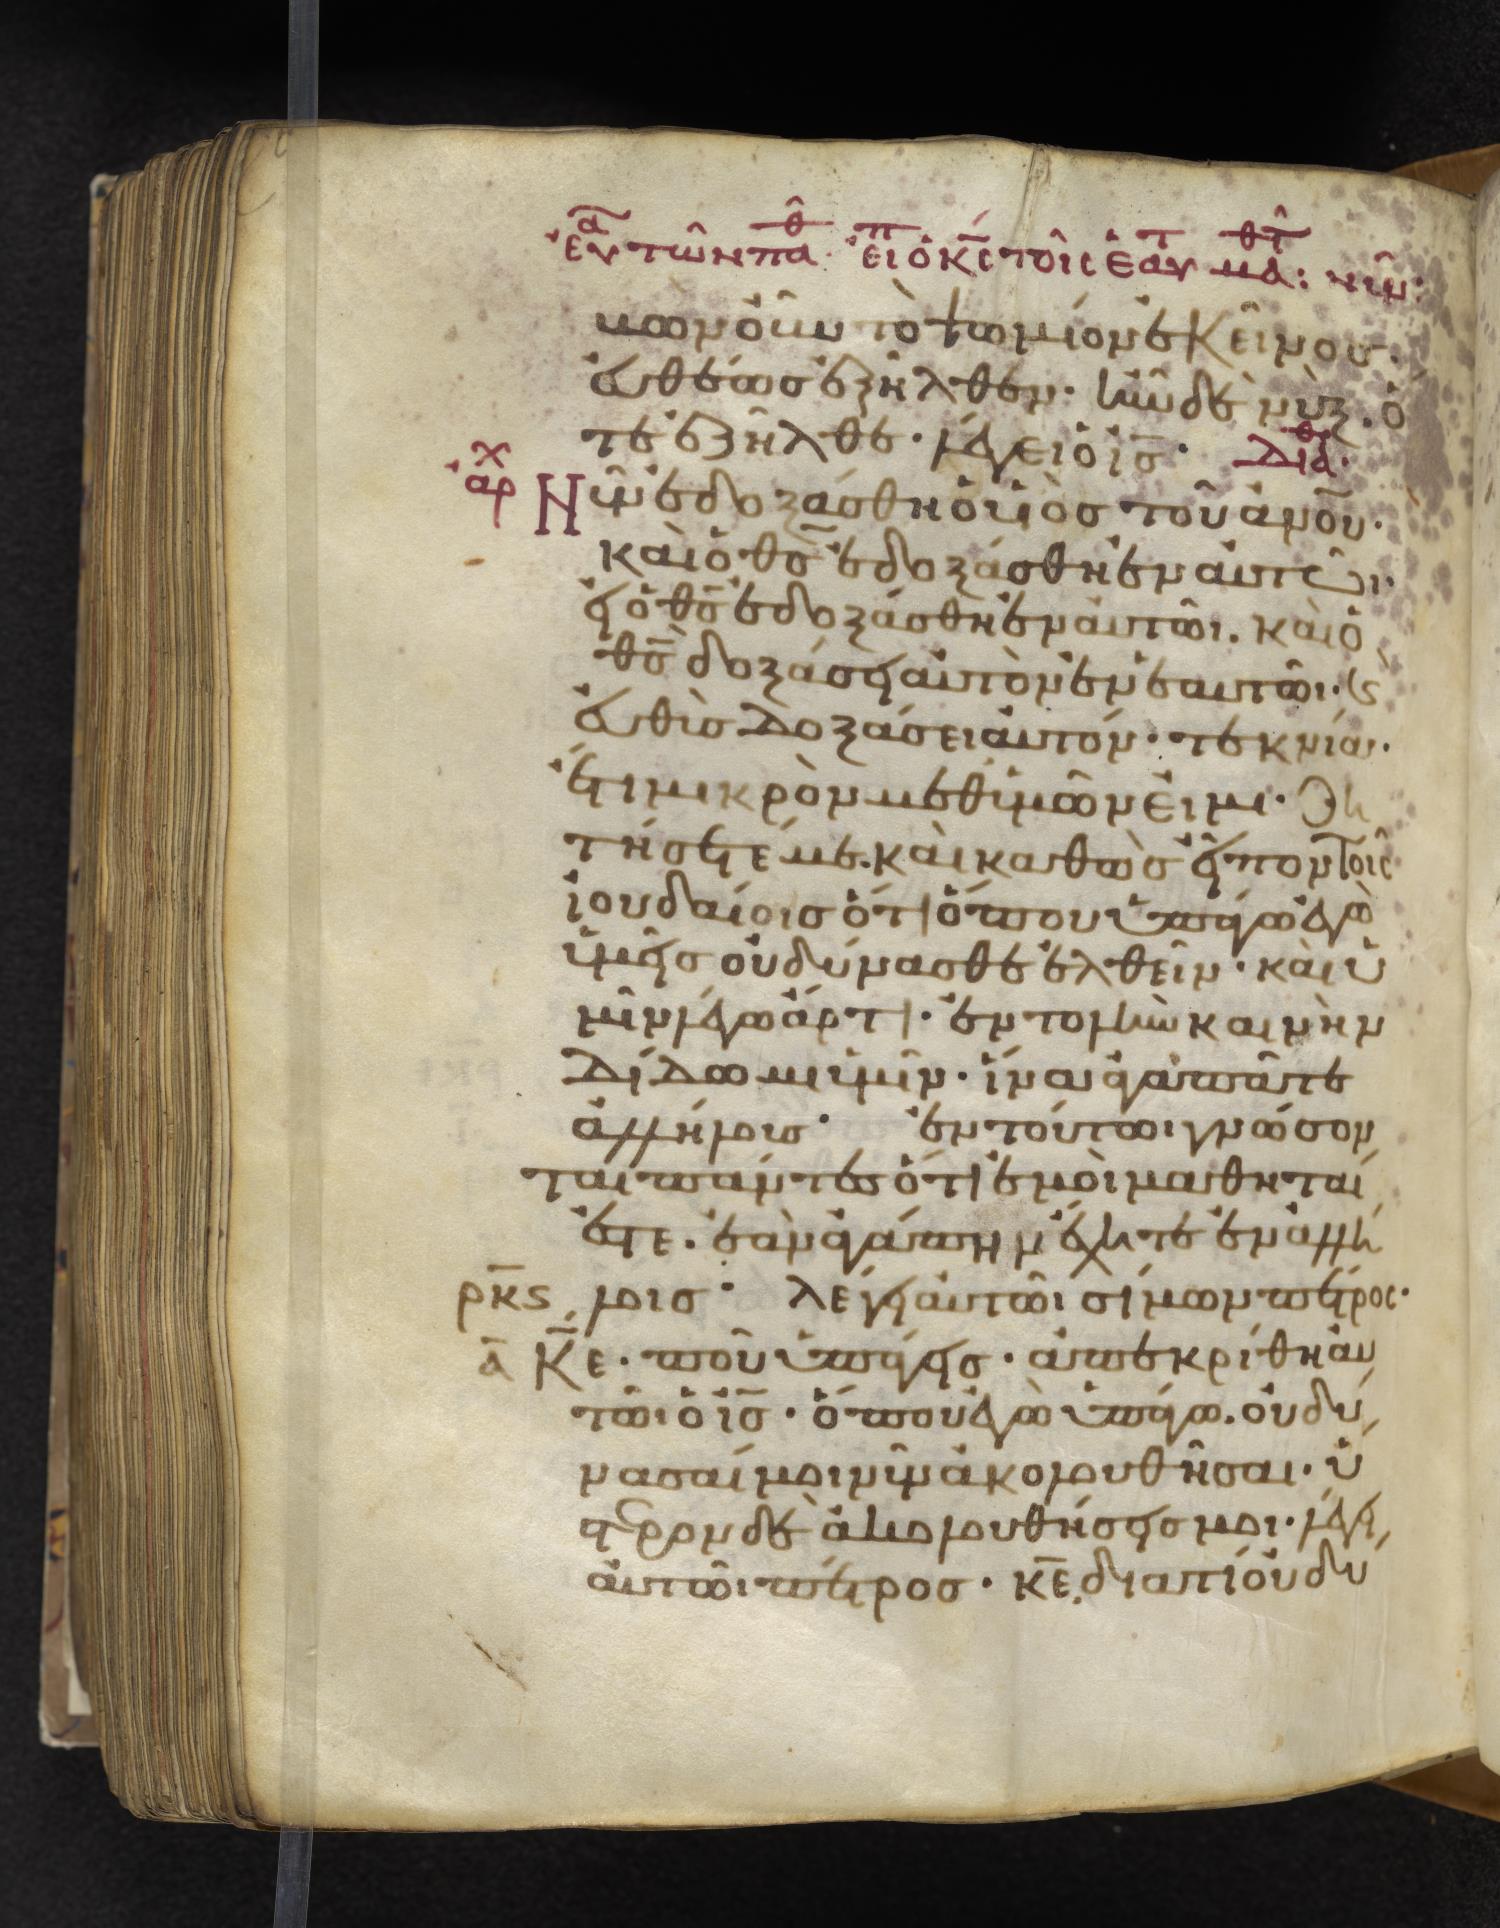 εὐα τῶν παθ εἶπ ὁ κς τοῖς ἑαυτ μαθτ: νῦν:
βὼν οὖν τὸ ψωμίον ἐκεῖνος.
εὐθέως ἐξῆλθεν· ἦν δὲ νύξ. ὅ
τε ἐξῆλθε· λέγει ὁ ις·
ἀρχ Νῦν ἐδοξάσθη ὁ υἱὸς τοῦ ανου·
καὶ ὁ θς ἐδοξάσθη ἐν αὐτῶι·
εἰ ὁ θς ἐδοξάσθη ἐν αὐτῶι. καὶ ὁ
θς δοξάσει αὐτὸν ἐν ἑαυτῶι· κ
εὐθὺσ δοξάσει αὐτόν· τεκνία·
ἔτι μικρὸν μεθ ὑμῶν εἰμι· ζη
τήσετέ με. καὶ καθὼσ εἶπον τοῖς
ἰουδαίοισ ὅτι ὅπου ὑπάγω ἐγὼ
ὑμεῖσ οὐ δύνασθε ἐλθεῖν· καὶ ὑ
μῖν λέγω ἄρτι· ἐντολὴν καινὴν
δίδωμι ὑμῖν· ἵνα ἀγαπᾶτε
ἀλλήλουσ· ἐν τούτωι γνώσον
ται πάντεσ ὅτι ἐμοὶ μαθηταί
ἐστε. ἐὰν ἀγάπην ἔχητε ἐν ἀλλή
ρκς λοισ· λέγει αὐτῶι σίμων πέτρος·
α κε. ποῦ ὑπάγεισ· ἀπεκρίθη αυ
τῶι ὁ ις· ὅπου ἐγὼ ὑπάγω. οὐ δύ
νασαί μοι νῦν ἀκολουθῆσαι· ὕ
στερον δὲ ἀκολουθήσεισ μοι· λέγει
αὐτῶι πέτροσ· κε. διατί οὐ δύ